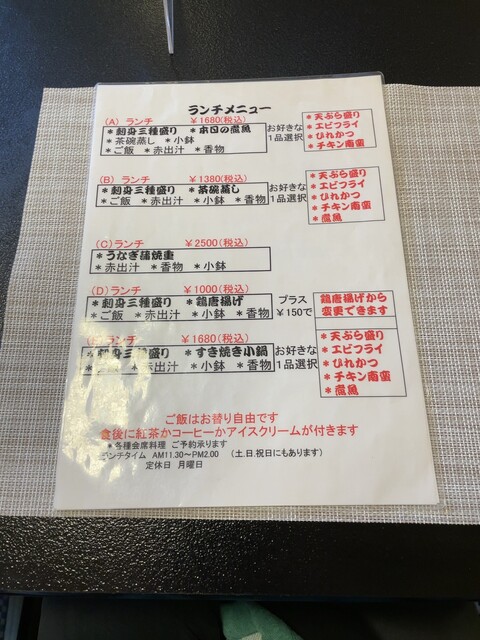 ランチメニュー
(A) ランチ ￥1680(税込)
＊刺身三種盛り ＊本日の煮魚
＊茶碗蒸し ＊小鉢
＊ご飯 ＊赤出汁 ＊香物
お好きな
1品選択
＊天ぷら盛り
＊エビフライ
＊ひれかつ
＊チキン南蛮
(B) ランチ ￥1380(税込)
＊刺身三種盛り ＊茶碗蒸し
＊ご飯 ＊赤出汁 ＊小鉢 ＊香物
お好きな
1品選択
＊天ぷら盛り
＊エビフライ
＊ひれかつ
＊チキン南蛮
＊煮魚
(C)ランチ ￥2500(税込)
＊うなぎ蒲焼重
＊赤出汁 ＊香物 ＊小鉢
(D)ランチ ￥1000(税込)
＊刺身三種盛り ＊鶏唐揚げ
＊ご飯 ＊赤出汁 ＊小鉢 ＊香物
プラス
￥150で
鶏唐揚げから
変更できます
ランチ ￥1680(税込)
＊刺身三種盛り ＊すき焼き小鍋
＊赤出汁 ＊小鉢 ＊香物
お好きな
1品選択
＊天ぷら盛り
＊エビフライ
＊ひれかつ
＊チキン南蛮
＊煮魚
ご飯はお替り自由です
食後に紅茶かコーヒーかアイスクリームが付きます
＊各種会席料理 ご予約承ります
ランチタイム AM11.30～PM2.00 (土,日,祝日にもあります)
定休日 月曜日